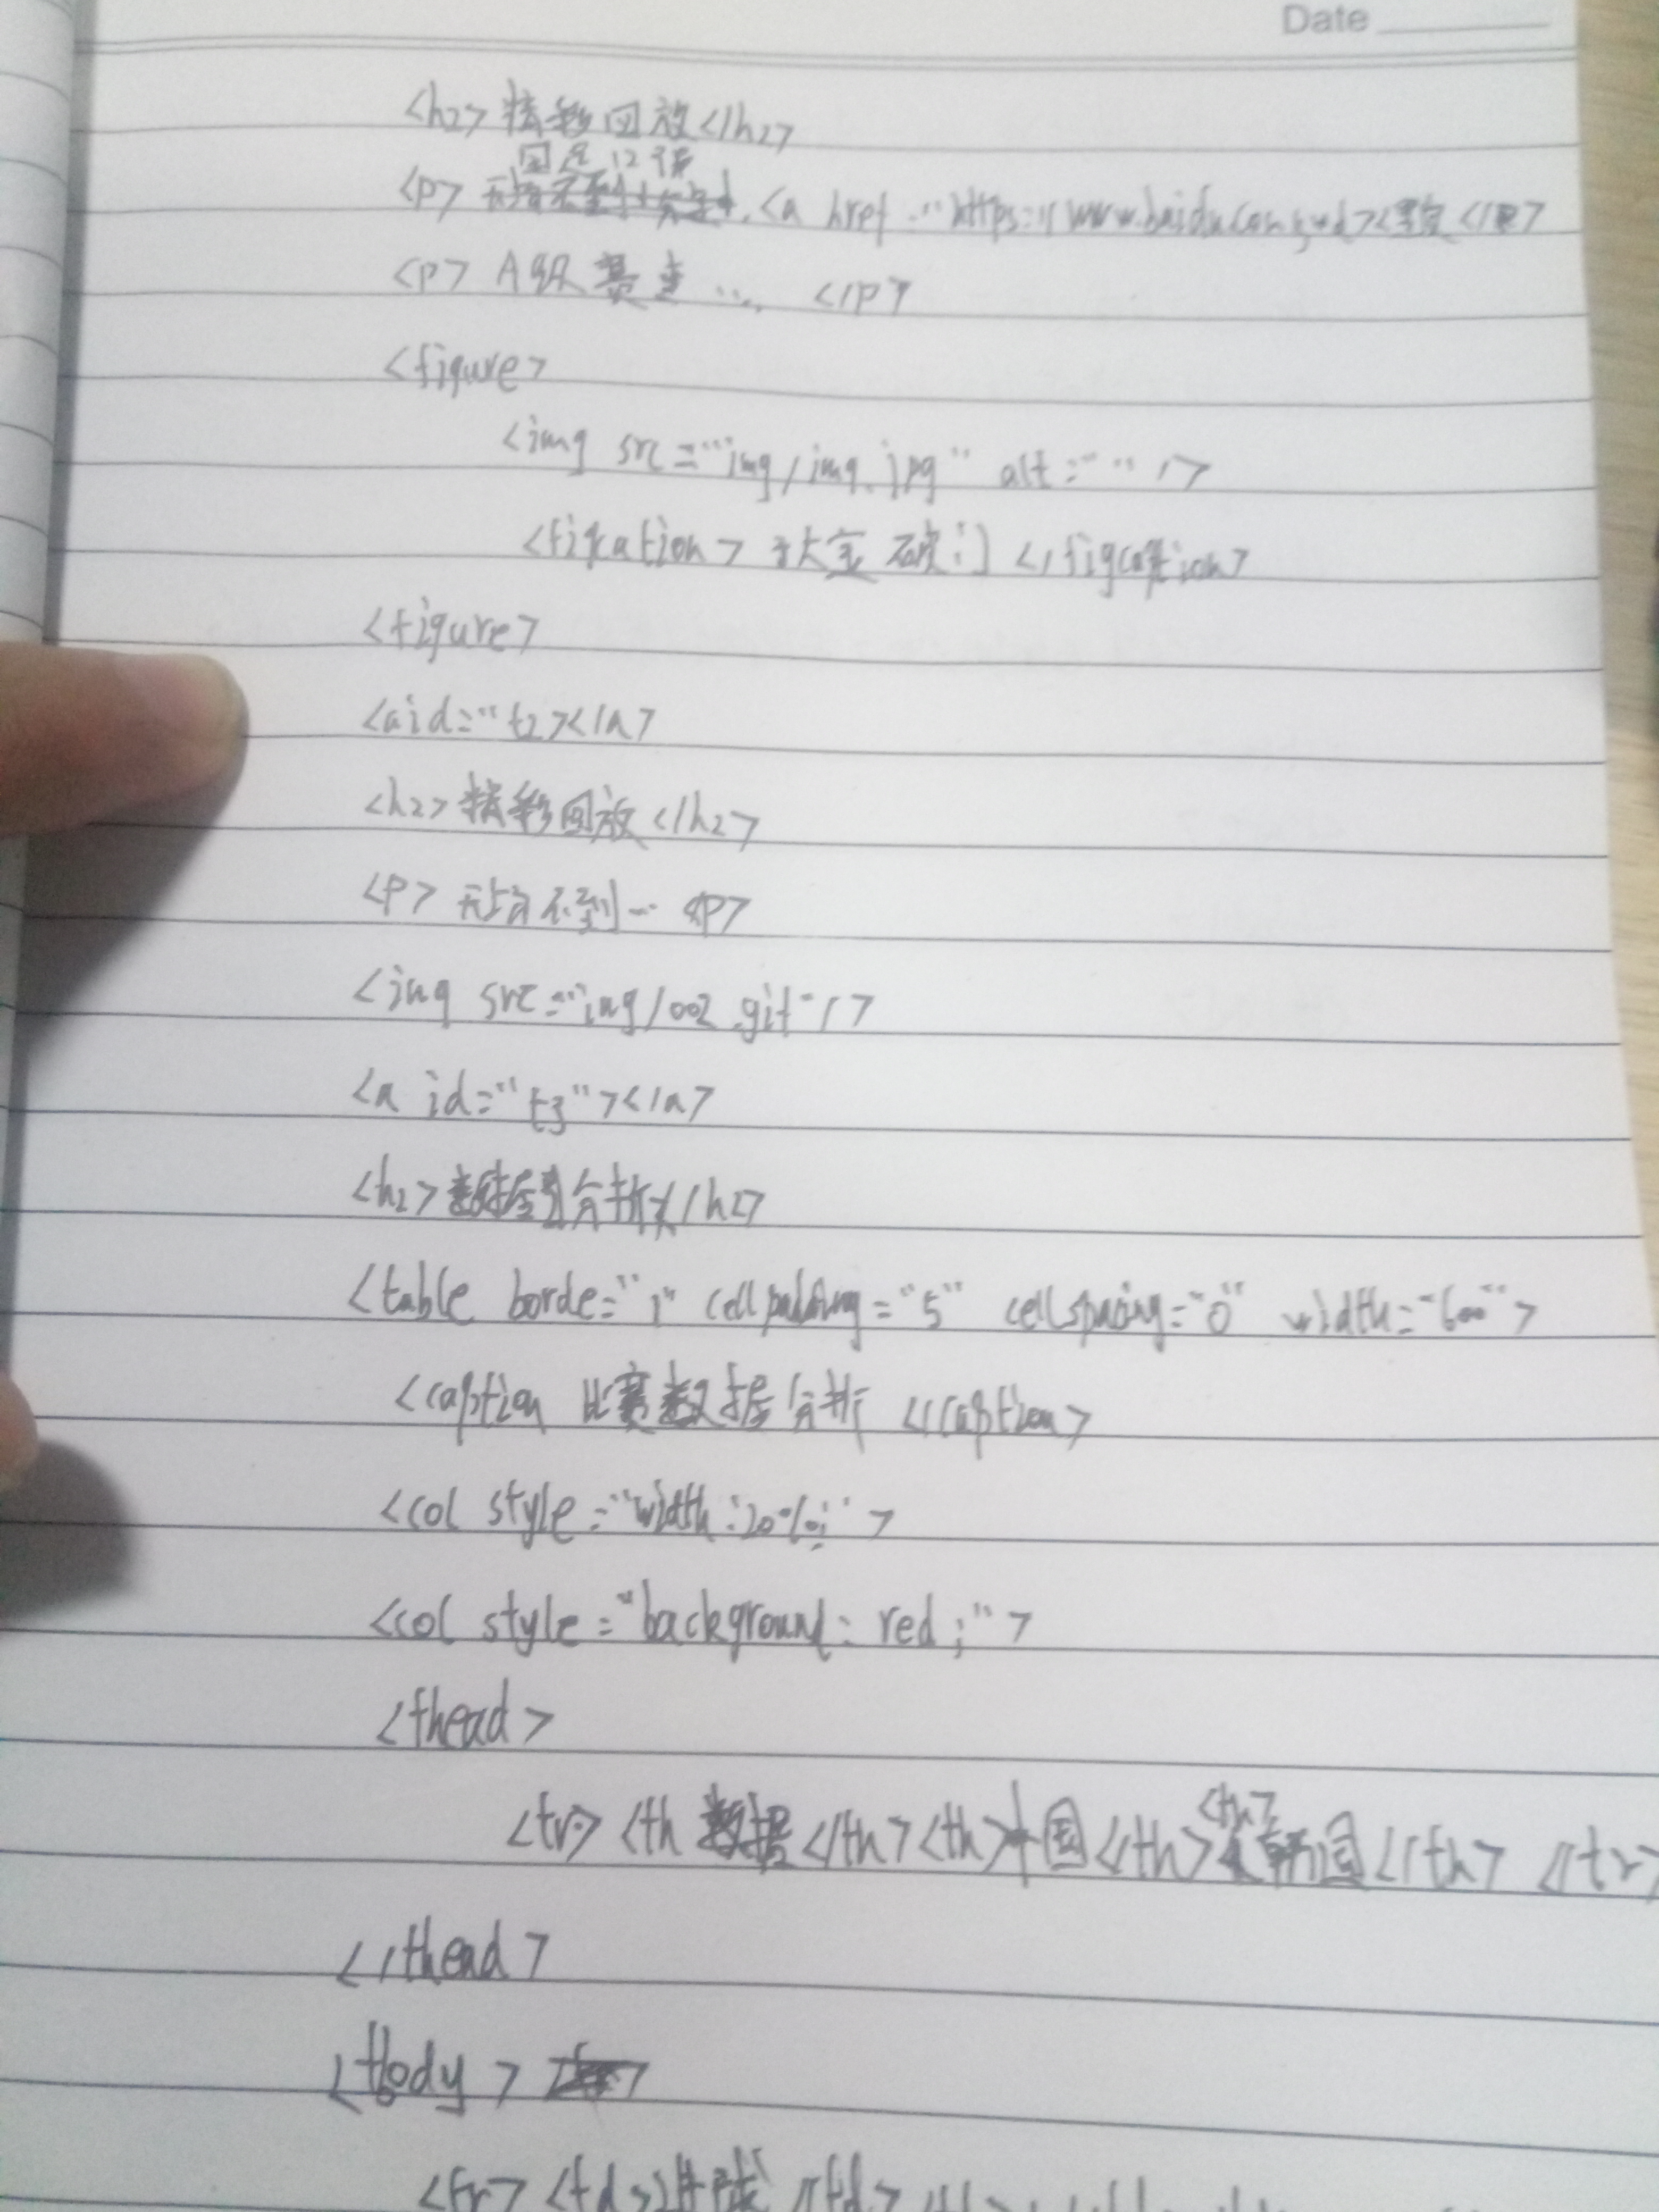 Date
<h2>精彩回放</h2>
国足12强
<p> <a href="https://www.baidu.com
<p> A级赛事 .... </p>
<figure>
<img src="img/img.jpg" alt="" />
<figcation> 于大宝破门 </figcaption>
<figure>
<aid="t2></a>
<h2>精彩回放</h2>
<p> 不到... <p>
<img src="img/002.gif"/>
<a id="t3"></a>
<h2>数据分析</h2>
<table borde="1" cellpadding="5" cellspacing="0" width="600">
<caption 比赛数据分析 </caption>
<col style="width:20%;">
<col style="background: red;">
<thead>
<th>
<tr> <th 数据</th><th>中国</th> 韩国</th> </tr>
</thead>
<tbody>
<tr> <td>进球 </td>